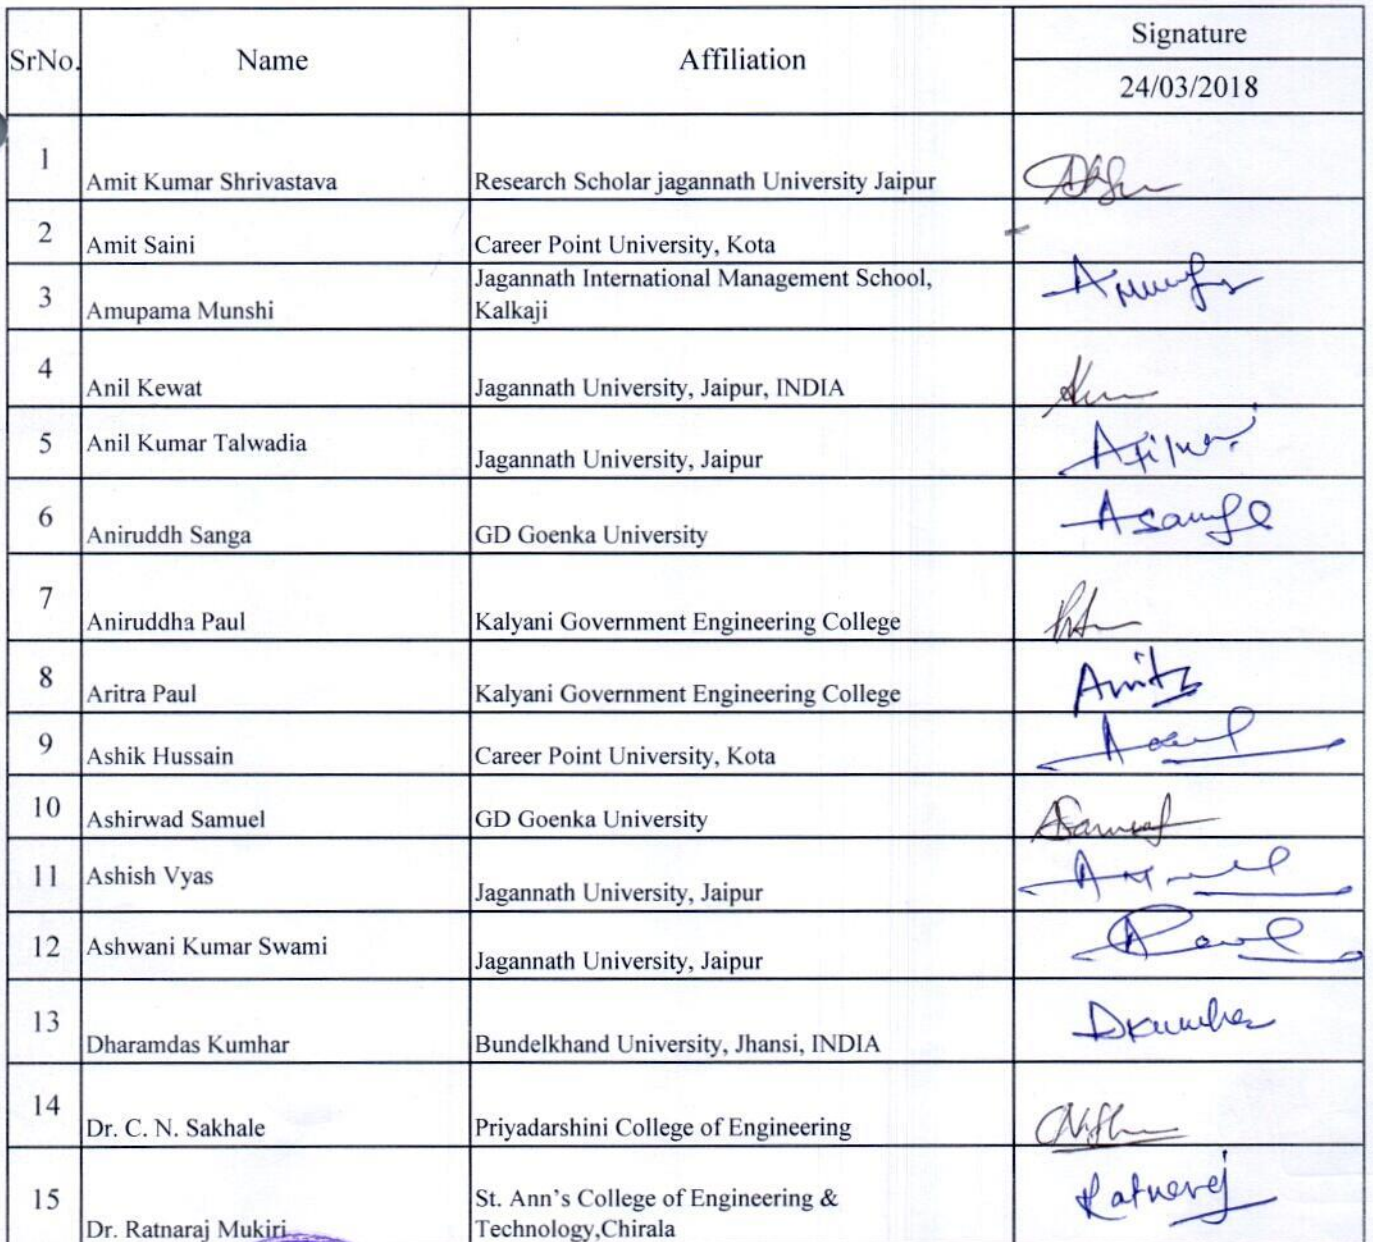 SrNo. Name Affiliation Signature
24/03/2018
1 Amit Kumar Shrivastava Research Scholar jagannath University Jaipur
2 Amit Saini Career Point University, Kota
3 Amupama Munshi Jagannath International Management School,
Kalkaji
4 Anil Kewat Jagannath University, Jaipur, INDIA
5 Anil Kumar Talwadia Jagannath University, Jaipur
6 Aniruddh Sanga GD Goenka University Asanga
7 Aniruddha Paul Kalyani Government Engineering College
8 Aritra Paul Kalyani Government Engineering College
9 Ashik Hussain Career Point University, Kota
10 Ashirwad Samuel GD Goenka University
11 Ashish Vyas Jagannath University, Jaipur
12 Ashwani Kumar Swami Jagannath University, Jaipur
13 Dharamdas Kumhar Bundelkhand University, Jhansi, INDIA
14 Dr. C. N. Sakhale Priyadarshini College of Engineering
15 Dr. Ratnaraj Mukiri St. Ann's College of Engineering & Ratneraj
Technology,Chirala